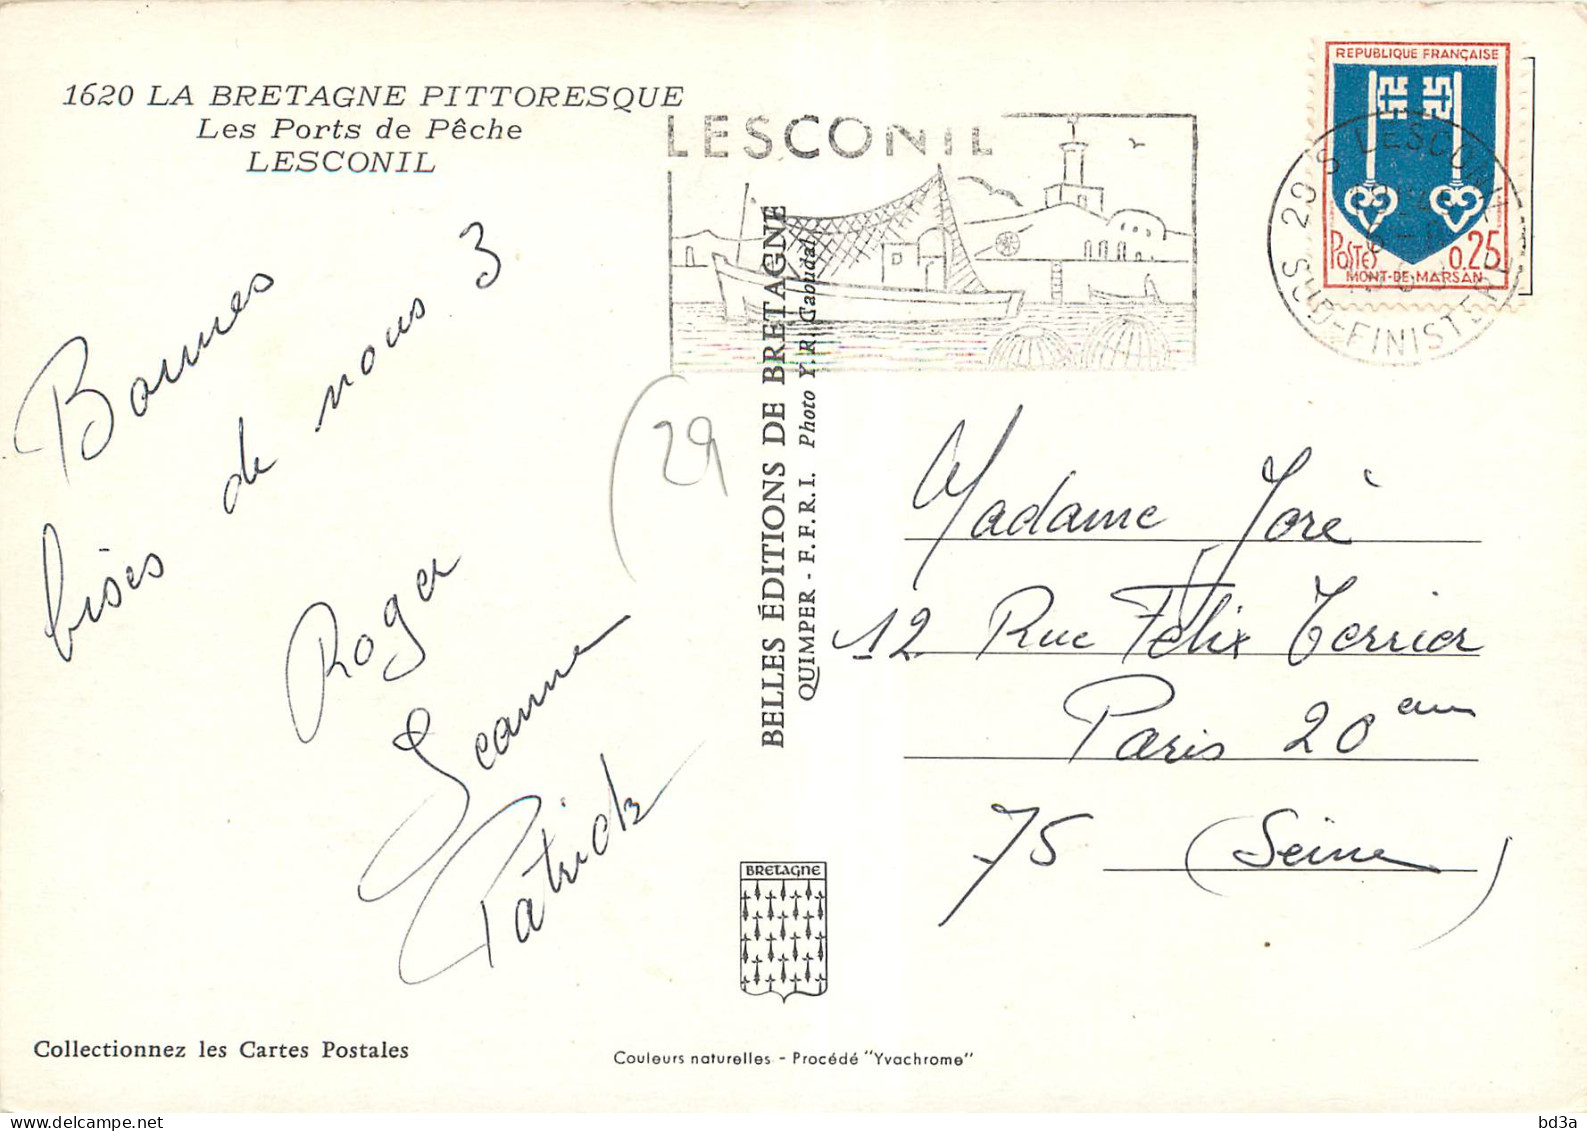 1620 LA BRETAGNE PITTORESQUE
Les Ports de Pêche
LESCONIL
LESCONIL
REPUBLIQUE FRANÇAISE
POSTES 0,25
MONT-DE-MARSAN
29 S LESCONIL
S. SUD-FINISTERE
Bonnes
bises de nous 3
Roger
Jeanne
Patrick
(29
BELLES ÉDITIONS DE BRETAGNE
QUIMPER - F.F.R.I. Photo Y.R. Gaoudal
Madame Joré
12 Rue Félix Terrier
Paris 20 em
75 (Seine)
BRETAGNE
Collectionnez les Cartes Postales
Couleurs naturelles - Procédé "Yvachrome"
bd3a